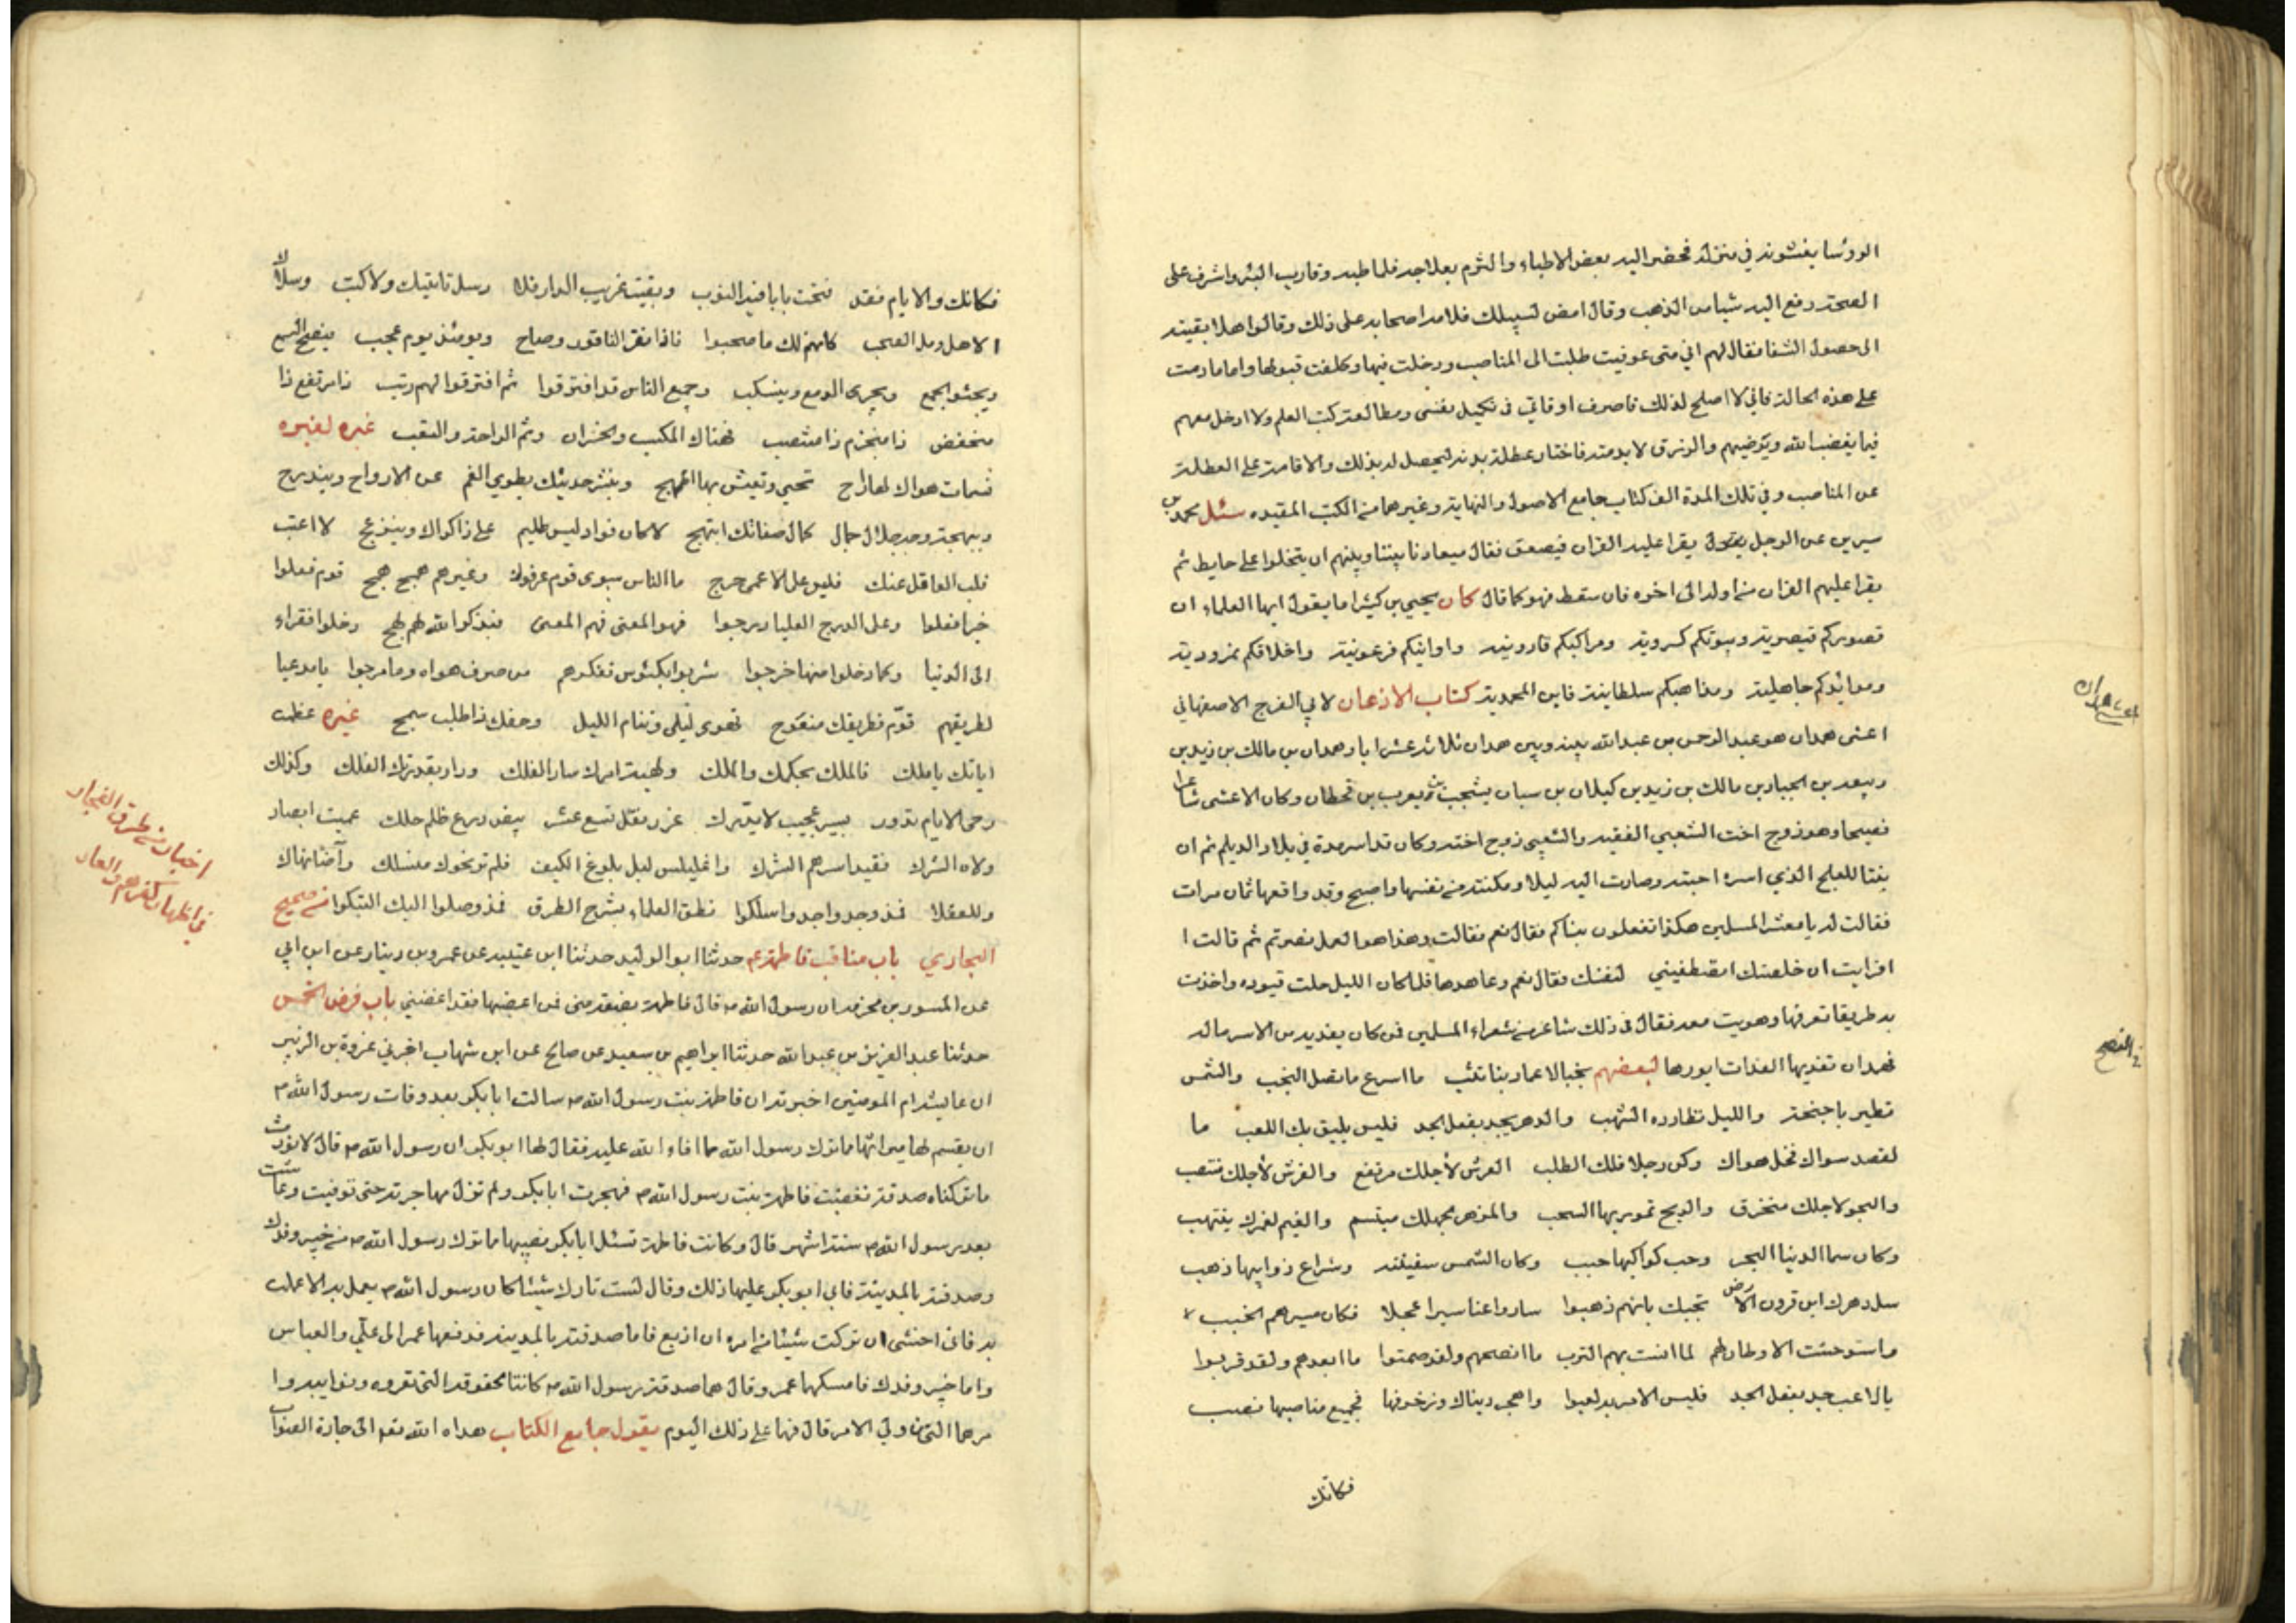 الرؤسا يغشونه في منزله فحضر اليه بعض الاطباء والتزم بعلاجه فلما طبه وقارب البرؤ واشرف على
الصحة دفع اليه شيا من الذهب وقال امض لسبيلك فلامه اصحابه على ذلك وقالوا هلا بقيته
الى حصول الشفا فقال لهم اني متى عوفيت طلبت الى المناصب ودخلت فيها وكلفت قبولها واما ما دمت
على هذه الحالة فاني لا اصلح لذلك فاصرف اوقاتي في تكميل نفسي ومطالعة كتب العلم ولا ادخل معهم
فيما يغضب الله ويرضيهم والرزق لا بد منه فاختار عطلة بدنه ليحصل له بذلك والاقامة على العطلة
عن المناصب وفي تلك المدة الف كتاب جامع الاصول والنهاية وغيرهما من الكتب المفيده سئل محمد بن
سيرين عن الرجل يقرا عليه القران فيصعق فقال ميعاد نا بيننا وبينهم ان يتخلوا على حايط ثم
يقرا عليهم القران من اوله الى اخره فان سقط فهو كما قال كان يحيى بن كثيرا ما يقول ايها العلماء ان
قصوركم قيصرية وبيوتكم كسروية ومراكبكم قارونية واوانيكم فرعونية واخلاقكم نمرودية
وموائدكم جاهلية ومذاهبكم سلطانية فاين المحمدية كتاب الاذعان لابي الفرج الاصفهاني
اعشى همدان هو عبد الرحمن بن عبد الله بينه وبين همدان ثلاثة عشر ابا وهمدان بن مالك بن زيد بن
ربيعه بن الجبار بن مالك بن زيد بن كيلان بن سبا بن يشجب بن يعرب بن قحطان وكان الاعشى شاعرا
فصيحا وهو زوج اخت الشعبي الفقيه والشعبي زوج اخته وكان قد اسر مدة في بلاد الديلم ثم ان
بنتا للعلج الذي اسره احبته وصارت اليه ليلا ومكنته من نفسها واصبح وقد واقعها ثمان مرات
فقالت له يا معشر المسلمين هكذا تفعلون بنسائكم فقال نعم فقالت وبهذا العمل نصرتم ثم قالت ا
افرايت ان خلصتك اتصطفيني لنفسك فقال نعم وعاهدها فلما كان الليل حلت قيوده واخذت
به طريقا تعرفها وهربت معه فقال في ذلك شاعر من شعراء المسلمين فمن كان يفديه من الاسر ماله
فهمدان تفديها الغداة ايورها لبعضهم نجب الاعمار بنا تثب ما اسرع ما تصل النجب والشمس
تطير باجنحة والليل تطارده الشهب والدهر يجد بفعل الجد فليس يليق بك اللعب ما
لقصد سواك فخل هواك وكن رجلا فلك الطلب العرش لاجلك مرتفع والفرش لاجلك منتصب
والجو لاجلك منخرق والريح تمور بها السحب والزهر بجهلك مبتسم والغيم لغمرك ينتهب
وكان سما الدنيا البحر وحب كواكبها حبب وكان الشمس سفينته وشراع ذوايبها ذهب
سل دهرك اين قرون الارض تجبك بانهم ذهبوا ساروا عنا سيرا عجلا فكان مسيرهم الخبب
واستوحشت الاوطان لهم لما انست بهم الترب ما افصحهم ولقد صمتوا ما ابعدهم ولقد قربوا
يا لاعب جد بفعل الجد فليس الامر به لعبوا واهجر دنياك وزخرفها فجميع مناصبها نصب
فكانك
اعشى همدان
في النصح
فكانك والايام فقد فتحت بابا فيه النوب وبقيت غريب الدار فلا رسل تاتيك ولا كتب وسلاك
الاهل ومل الصحب كانهم لك ما صحبوا فاذا نقر الناقور وصاح ويومئذ يوم عجب فينصخ السمع
ويجثو الجمع ويجري الدمع وينسكب وجميع الناس قد افترقوا ثم افترقوا لهم رتب ذا مرتفع ذا
منخفض ذا منجزم ذا منتصب فهناك المكسب والخسران وثم الراحة والتعب غيره لغيره
نسمات هواك لها ارج تحيي وتعيش بها المهج وبنشر حديثك يطوي الغم عن الارواح ويندرج
وببهجة وجه جلال جمال كمال صفاتك ابتهج لا كان فواد ليس يهيم على ذكراك وينزعج لا اعتب
قلب الغافل عنك فليس على الاعمى حرج ما الناس سوى قوم عرفوك وغيرهم همج همج قوم فعلوا
خيرا فعلوا وعلى الدرج العليا درجوا فهم المعنى فهم المعنى فبذكر الله لهم لهج دخلوا فقراء
الى الدنيا وكما دخلوا منها خرجوا شربوا بكئوس تفكرهم من صرف هواه وما مزجوا يا مدعيا
لطريقهم قوم فطريقك منعوج تهوى ليلى وتنام الليل وحقك ذا طلب سمج غيره عظمت
اياتك يا ملك فالملك بحكمك والملك ولهيبة امرك سار الفلك ودار بقدرتك الفلك وكذلك
رحى الايام تدور بسير عجيب لا يدرك غرر بفل تسع عشر بيض درع ظلم حلك عميت ابصار
ولاه الشرك فقيد اسرهم الشرك واغليلس ليل بلوغ الكيف فلم تر نحوك منسلك
وللعقلا فذ وجدوا جدوا سلكوا نطق العلماء بشرح الطرق فمذ وصلوا اليك ارتبكوا من صحيح
البخاري باب مناقب فاطمة ع حدثنا ابو الوليد حدثنا ابن عتيبه عن عمرو بن دينار عن ابن ابي
عن المسور بن مخرمه ان رسول الله ص قال فاطمة بضعة مني فمن اغضبها فقد اغضبني باب فرض الخمس
حدثنا عبد العزيز بن عبد الله حدثنا ابراهيم بن سعيد عن صالح عن ابن شهاب اخبرني عروة بن الزبير
ان عايشه ام المومنين اخبرته ان فاطمة بنت رسول الله ص سالت ابا بكر بعد وفات رسول الله ص
ان يقسم لها ميراثها ما ترك رسول الله مما افاء الله عليه فقال لها ابو بكر ان رسول الله ص قال لا نورث
ما تركناه صدقة فغضبت فاطمة بنت رسول الله ص فهجرت ابا بكر ولم تزل مهاجرته حتى توفيت وعاشت
بعد رسول الله ص ستة اشهر قال وكانت فاطمة تسئل ابا بكر نصيبها ما ترك رسول الله ص من خيبر وفدك
وصدقته بالمدينة فابى ابو بكر عليها ذلك وقال لست تارك شيئا كان رسول الله ص يعمل به الا عملت
به فاني اخشى ان تركت شيئا من امره ان ازيغ فاما صدقته بالمدينه فدفعها عمر الى علي والعباس
واما خيبر وفدك فامسكهما عمر وقال هما صدقة رسول الله ص كانتا لحقوقه التي تعروه ونوايبه وا
مرهما الى من ولي الامر قال فهما على ذلك اليوم يقول جامع الكتاب هداه الله تعو الى جادة الصواب
اخبار من طرق الفجار
في اظهار كفرهم والعار